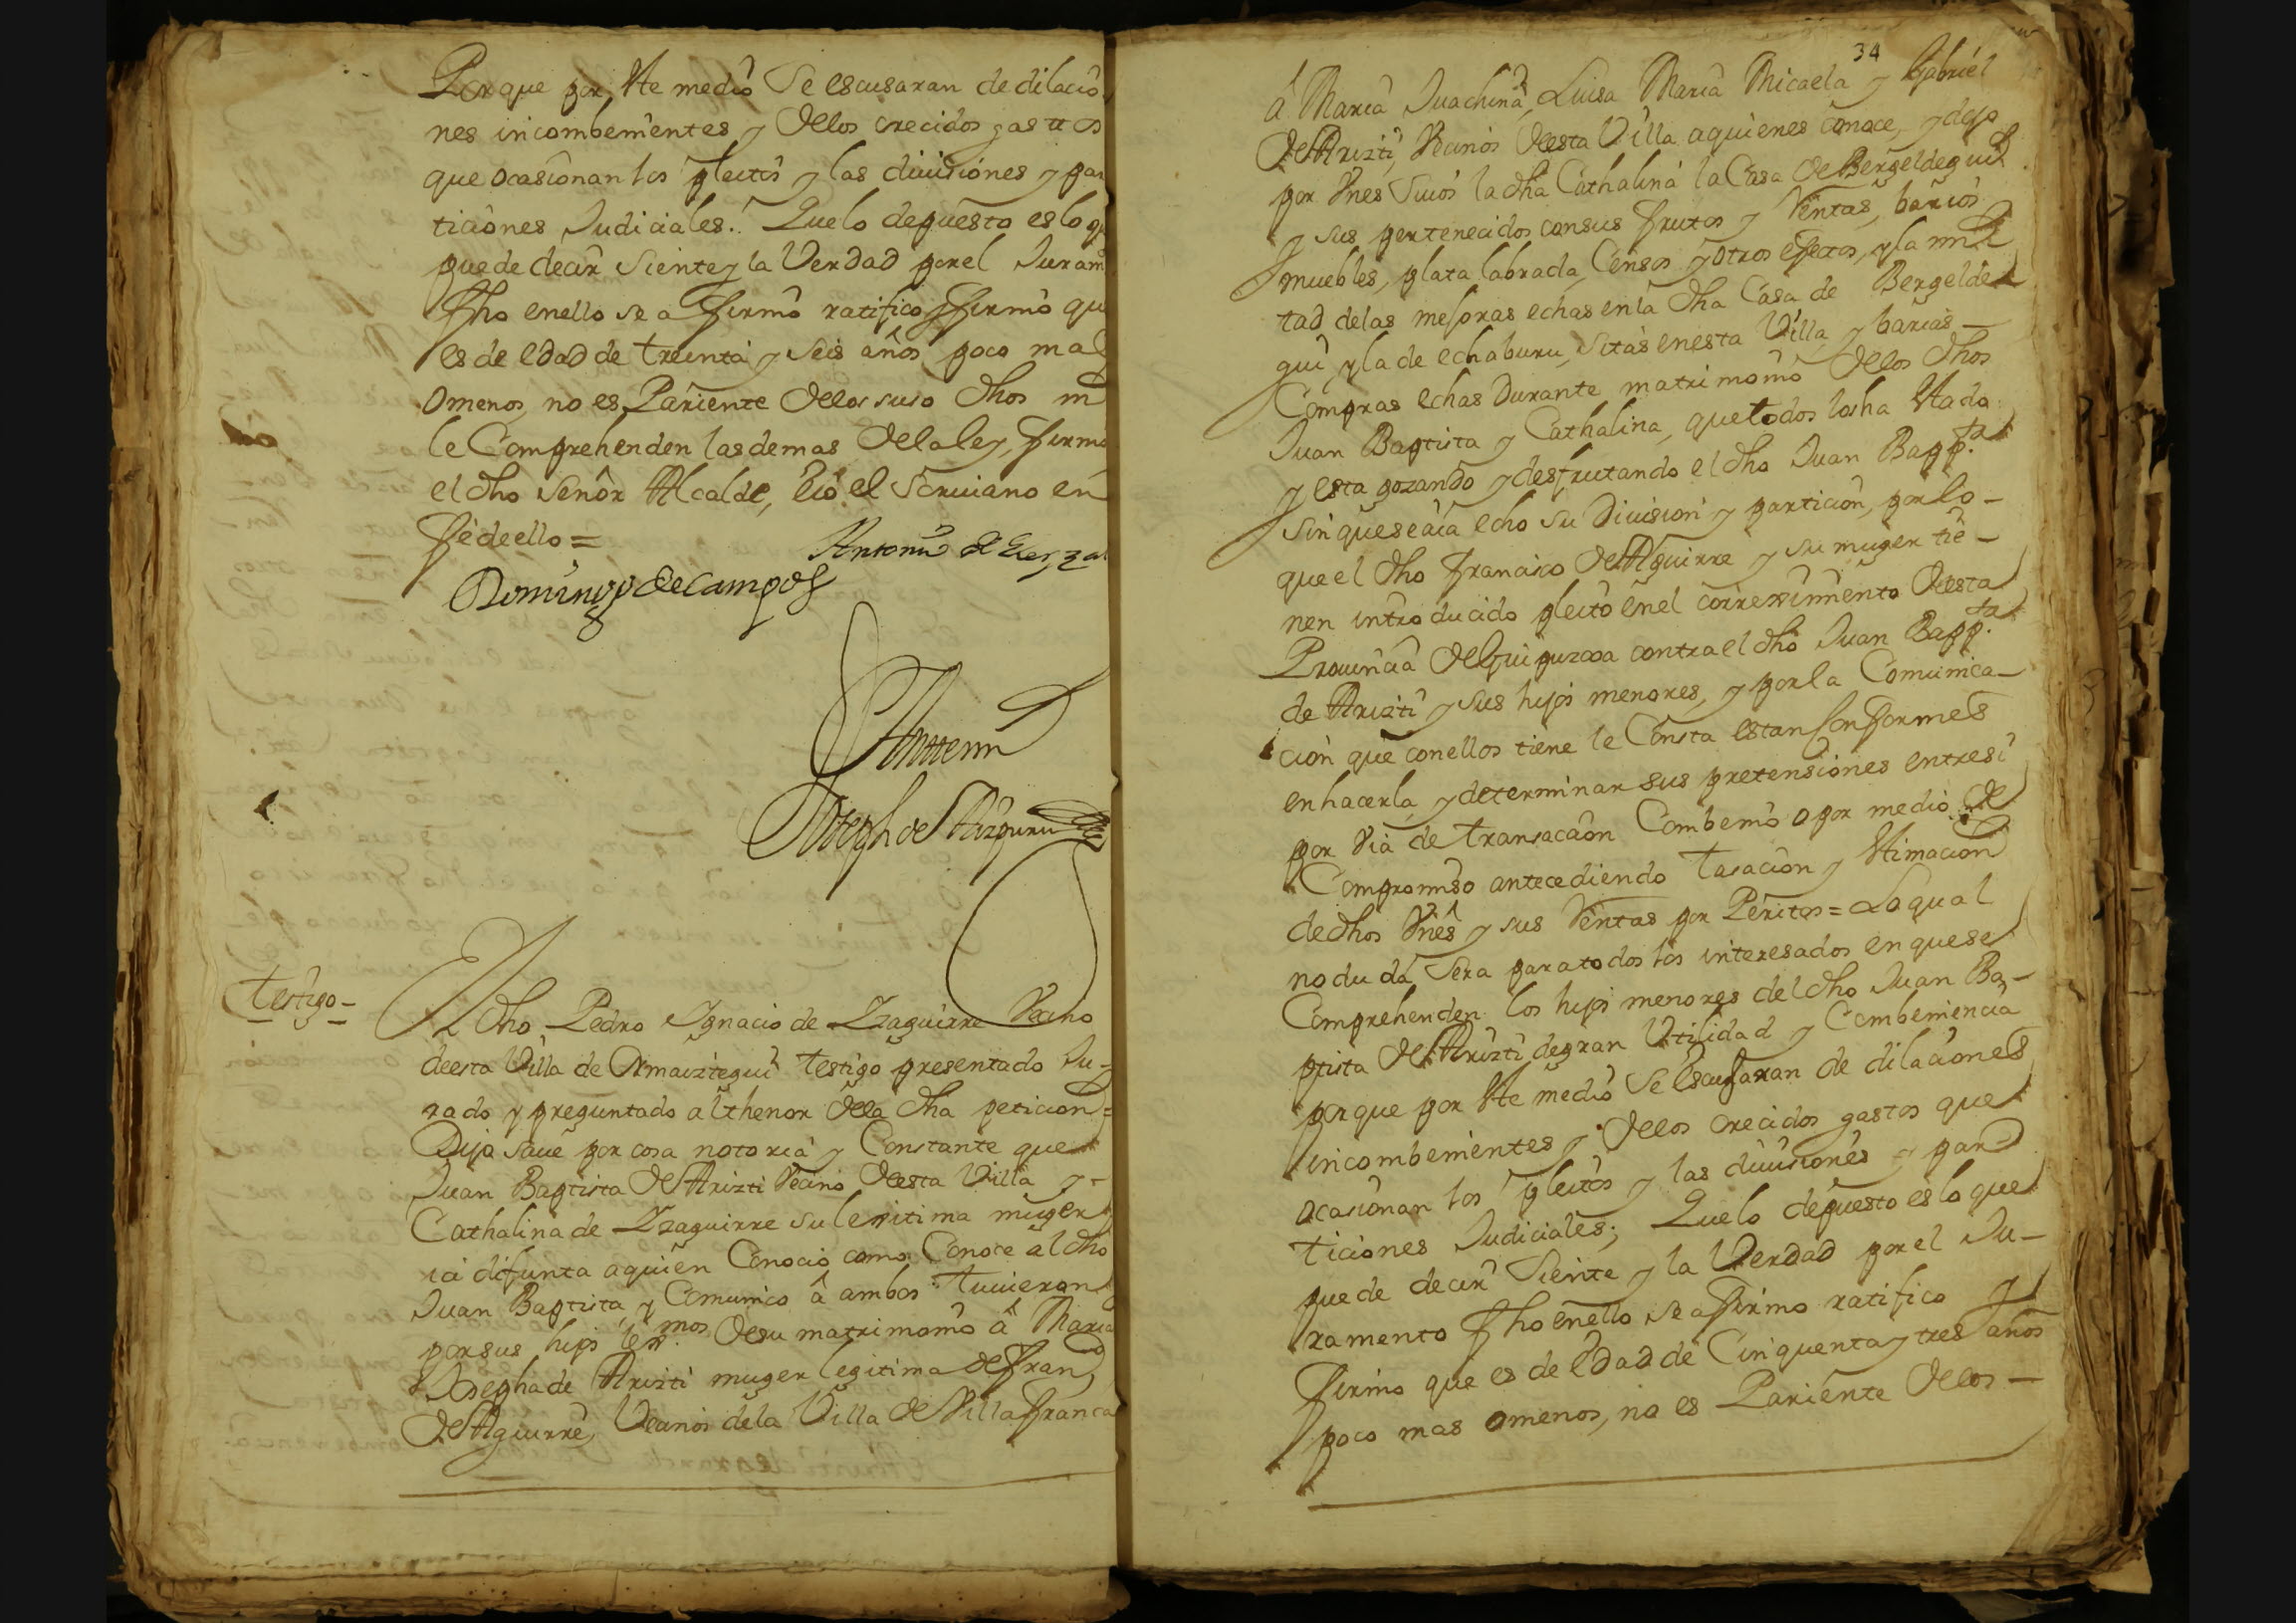 Porque por este medio se escusaran de dilacio
nes incombenientes y delos crecidos gastos
que ocasionan los pleitos y las diuisiones y par
ticiones Judiciales. Quelo depuesto es lo q
puede decir siente y la Verdad por el Juram
fho enello se afirmo ratifico y firmo que
es de edad de treinta y seis años poco mas
omenos, no es Pariente delos suso dhos ni
le Comprehenden lasdemas dela ley, firmo
el dho Señor Alcalde, e io el Scriuano en
fe de ello =
Antonio de
Domingo de Campos
Ante mi
Joseph de
testigo
El dho Pedro Ygnacio de Yzaguirre Vecino
deesta Villa de Ormaiztegui testigo presentado Ju-
rado y preguntado althenor dela dha peticion =
Dijo saue por cosa notoria y Constante que
Juan Baptista de Arizti Vecino desta Villa y
Cathalina de Yzaguirre su lexitima muger
ia difunta aquien Conocio como Conoce al dho
Juan Baptista, y Comunico â ambos tuuieron
porsus hijos lexmos. desu matrimonio â Maria
Josepha de Arizti muger legitima de Fran
de Aguirre, Vecinos dela Villa de Villafranca
34
â Maria Juachina, Luisa Maria Micaela y Gabriel
de Arizti, Vecinos desta Villa aquienes conoce, y dejo
por Vnes Suios la dha Cathalina la Casa de Bergeldegui
y sus pertenecidos consus frutos y Rentas, barios
muebles, plata labrada, Censos y otros efectos, y la mi
tad delas mejoras echas enla dha Casa de Bergelde
gui, y la de echaburu, sitas enesta Villa y barias
Compras echas Durante matrimonio delos dhos
Juan Baptista y Cathalina, quetodos losha estado
y esta gozando y desfrutando el dho Juan Bappta.
sin queseaia echo su Diuision y particion, por lo
que el dho Francisco de Aguirre y su muger tie-
nen introducido pleito enel correximiento desta
Prouincia de Guipuzcoa contrael dho Juan Bappta.
de Arizti y sus hijos menores, y porla Comunica-
cion que conellos tiene le Consta estan Conformes
enhacerla y determinar sus pretensiones entresi
por via de transaccion Combenio o por medio de
Compromiso antecediendo tasacion y estimacion
dedhos Vnes y sus Rentas por Peritos = Loqual
nodu da sera paratodos los interesados en quese
Comprehenden los hijos menores del dho Juan Ba-
ptista de Arizti degran Vtilidad y Combeniencia
porque por este medio se escusaran de dilaciones
incombenientes y delos crecidos gastos que
ocasionan los pleitos y las diuisiones y par
ticiones Judiciales; Quelo depuesto es lo que
puede decir siente y la Verdad por el Ju-
ramento fho enello se afirmo ratifico y
firmo que es de edad de Cinquenta y tres años
poco mas omenos, no es Pariente delos